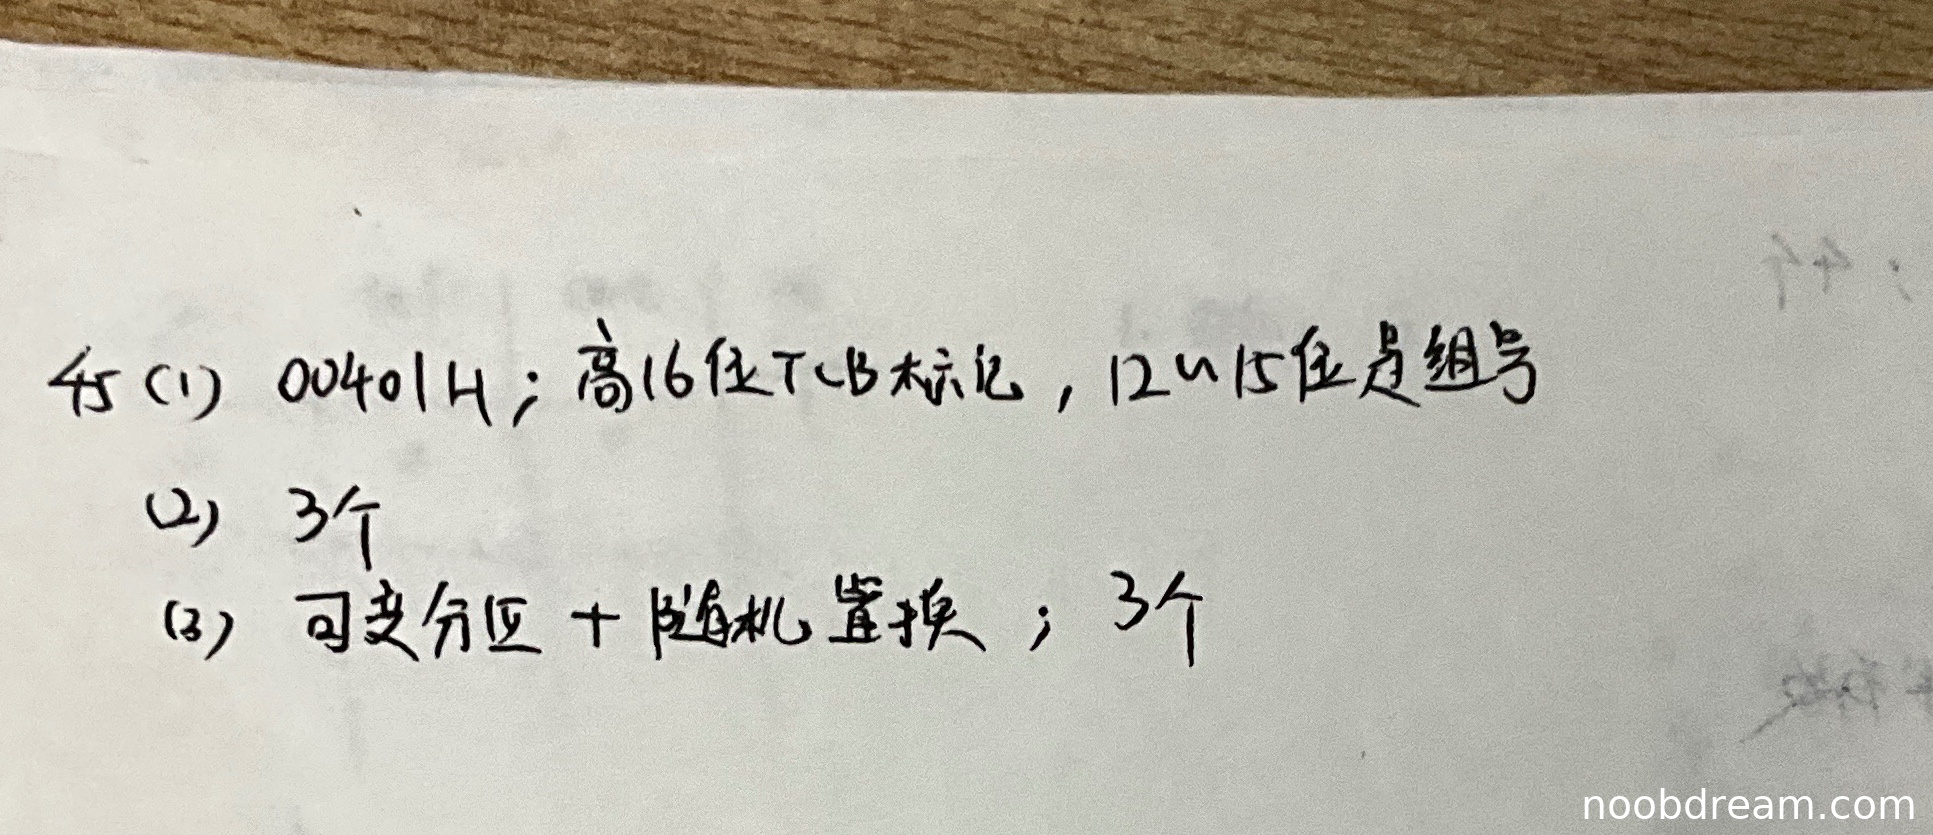 45 (1) 00401H；高16位TCB标记，12~15位是组号
(2) 3个
(3) 可变分区 + 随机置换；3个
noobdream.com